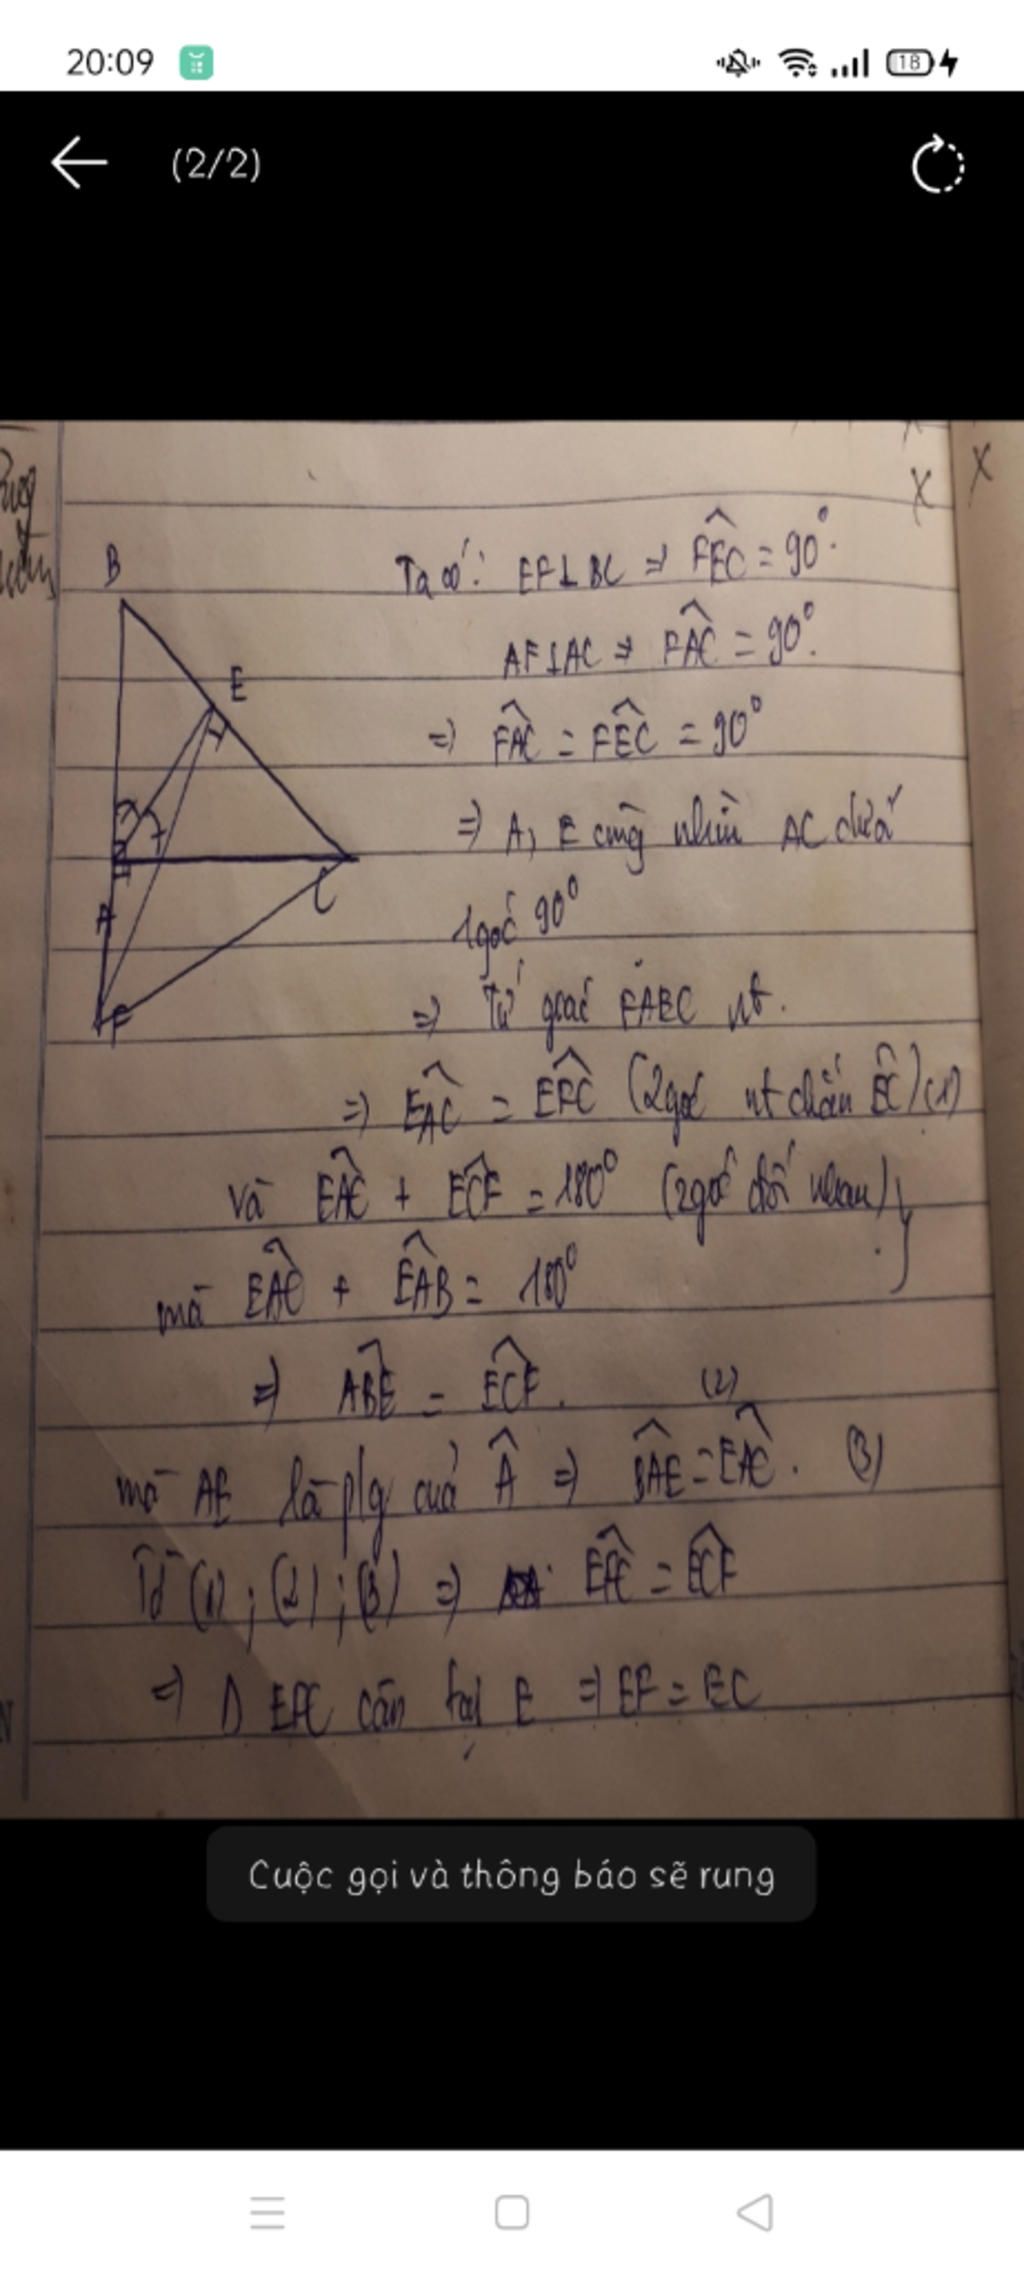 20:09
18
(2/2)
B
E
A
C
F
x
x
Ta có: EF⊥BC ⇒ FEC = 90°.
AF⊥AC ⇒ FAC = 90°.
⇒ FAC = FEC = 90°
⇒ A, E cùng nhìn AC dưới
1 góc 90°
⇒ Tứ giác FAEC nt.
⇒ EAC = EFC (2 góc nt chắn EC) (1)
Và EAC + ECF = 180° (2 góc đối nhau)
mà EAC + EAB = 180°
⇒ ABE = ECF. (2)
mà AE là p/g của A ⇒ BAE = EAC. (3)
Từ (1); (2); (3) ⇒ EFC = ECF
⇒ Δ EFC cân tại E ⇒ EF = EC
Cuộc gọi và thông báo sẽ rung